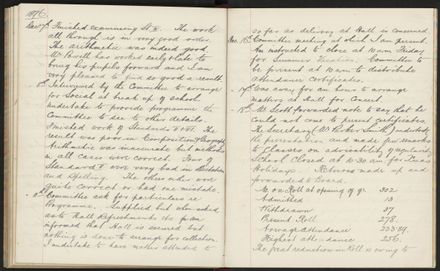 1896
Dec 7th Finished examining St V. The work
all through is in very good order.
The arithmetic was indeed good
Mr Powell has worked early & late to
bring his pupils forward and I am
very pleased to find so good a result.
Interviewed by the Committee to arrange
for Social at break up of school
undertake to provide programme the
Committee to see to other details.
Finished work of Standards V & VI. The
result was poor in Composition & Geography
Arithmetic was inaccurate but method
in all cases were correct. Two of
Standard V were very bad in arithmetic
and Spelling. The others either were
quite correct or had one mistake.
Committee ask for particulars re
Programme. Supplied but when asked
as to Hall Refreshments &c I am
informed that the Hall is secured but
nothing is done to arrange for collection.
I undertake to have matters attended to
so far as delivery at Hall is concerned
Dec. 16th Committee meeting at which I am present.
Am instructed to close at 10 am Friday
for Summer vacation. Committee to
be present at 10 am to distribute
attendance certificates.
17th Was away for an hour to arrange
matters at Hall for Concert
18th Mr Scott forwarded note to say that he
could not come to present certificates.
The Secretary (Mr Robt Smith) undertook
the presentation and made few remarks
to Classes on advisability of regularity.
School Closed at 10.30 am for Xmas
Holidays. Returns made up and
forwarded to Board.
No. on Roll at opening of qr. 302
Admitted 13
Withdrawn 37
Present Roll 278
Average attendance
Highest attendance 256.
The great reduction in Roll is owing to